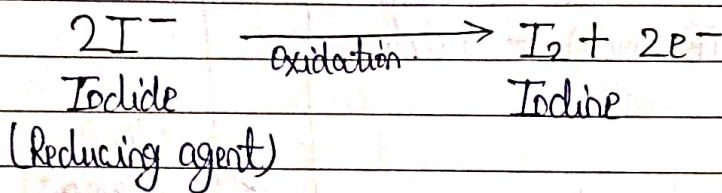 2I⁻ → I₂ + 2e⁻
Oxidation.
Iodide Iodine
(Reducing agent)